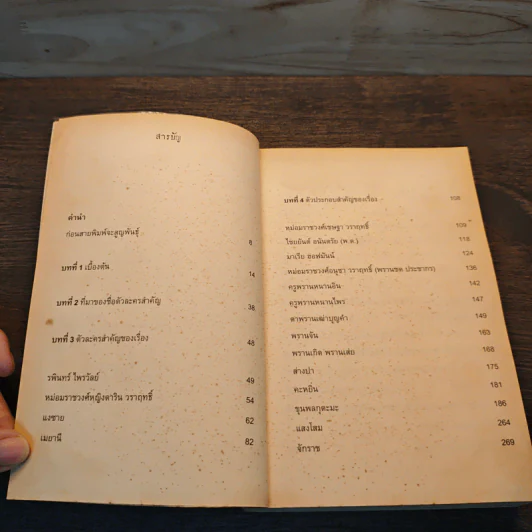 สารบัญ
คำนำ
ก่อนสายพิมพ์จะสูญพันธุ์ 8
บทที่ 1 เบื้องต้น 14
บทที่ 2 ที่มาของชื่อตัวละครสำคัญ 38
บทที่ 3 ตัวละครสำคัญของเรื่อง 48
รพินทร์ ไพรวัลย์ 49
หม่อมราชวงศ์หญิงดาริน วราฤทธิ์ 54
แงซาย 62
เมยานี 82
บทที่ 4 ตัวประกอบสำคัญของเรื่อง 108
หม่อมราชวงศ์เชษฐา วราฤทธิ์ 109
ไชยยันต์ อนันตรัย (พ.ต.) 118
มาเรีย ฮอฟมันน์ 124
หม่อมราชวงศ์อนุชา วราฤทธิ์ (พรานชด ประชากร) 136
ครูพรานหนานอิน 142
ครูพรานหนานไพร 147
สาพรานเฒ่าบุญคำ 149
พรานจัน 163
พรานเกิด พรานเสย 168
ส่างปา 175
คะหยิ่น 181
ขุนพลกุตะมะ 186
แสงโสม 264
จักราช 269